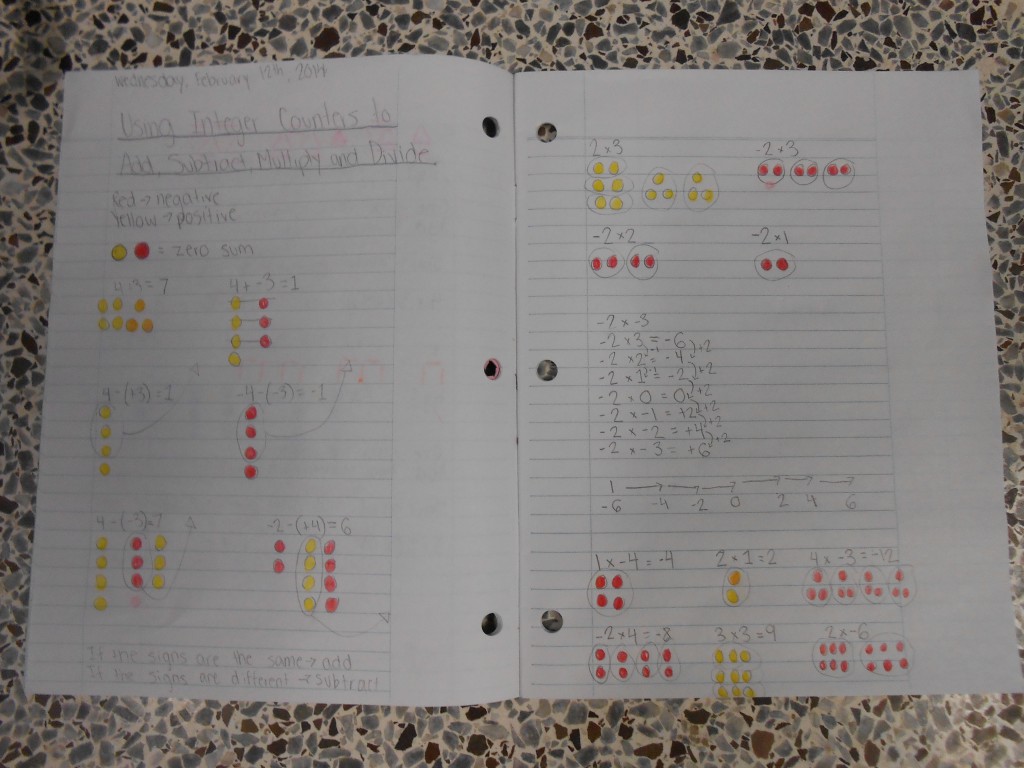 Wednesday, February 12th, 2014
Using Integer Counters to
Add, Subtract, Multiply and Divide
Red → negative
Yellow → positive
= zero sum
4+3=7 4+-3=1
4-(+3)=1 -4-(-3)=-1
4-(-3)=7 -2-(+4)=6
If the signs are the same → add
If the signs are different → subtract
2×3 -2×3
-2×2 -2×1
-2 × -3
-2 × 3 = -6
-2 × 2 = -4 )+2
-2 × 1 = -2 )+2
-2 × 0 = 0 )+2
-2 × -1 = +2 )+2
-2 × -2 = +4 )+2
-2 × -3 = +6 )+2
-6 -4 -2 0 2 4 6
1×-4=-4 2×1=2 4×-3=-12
-2×4=-8 3×3=9 2×-6